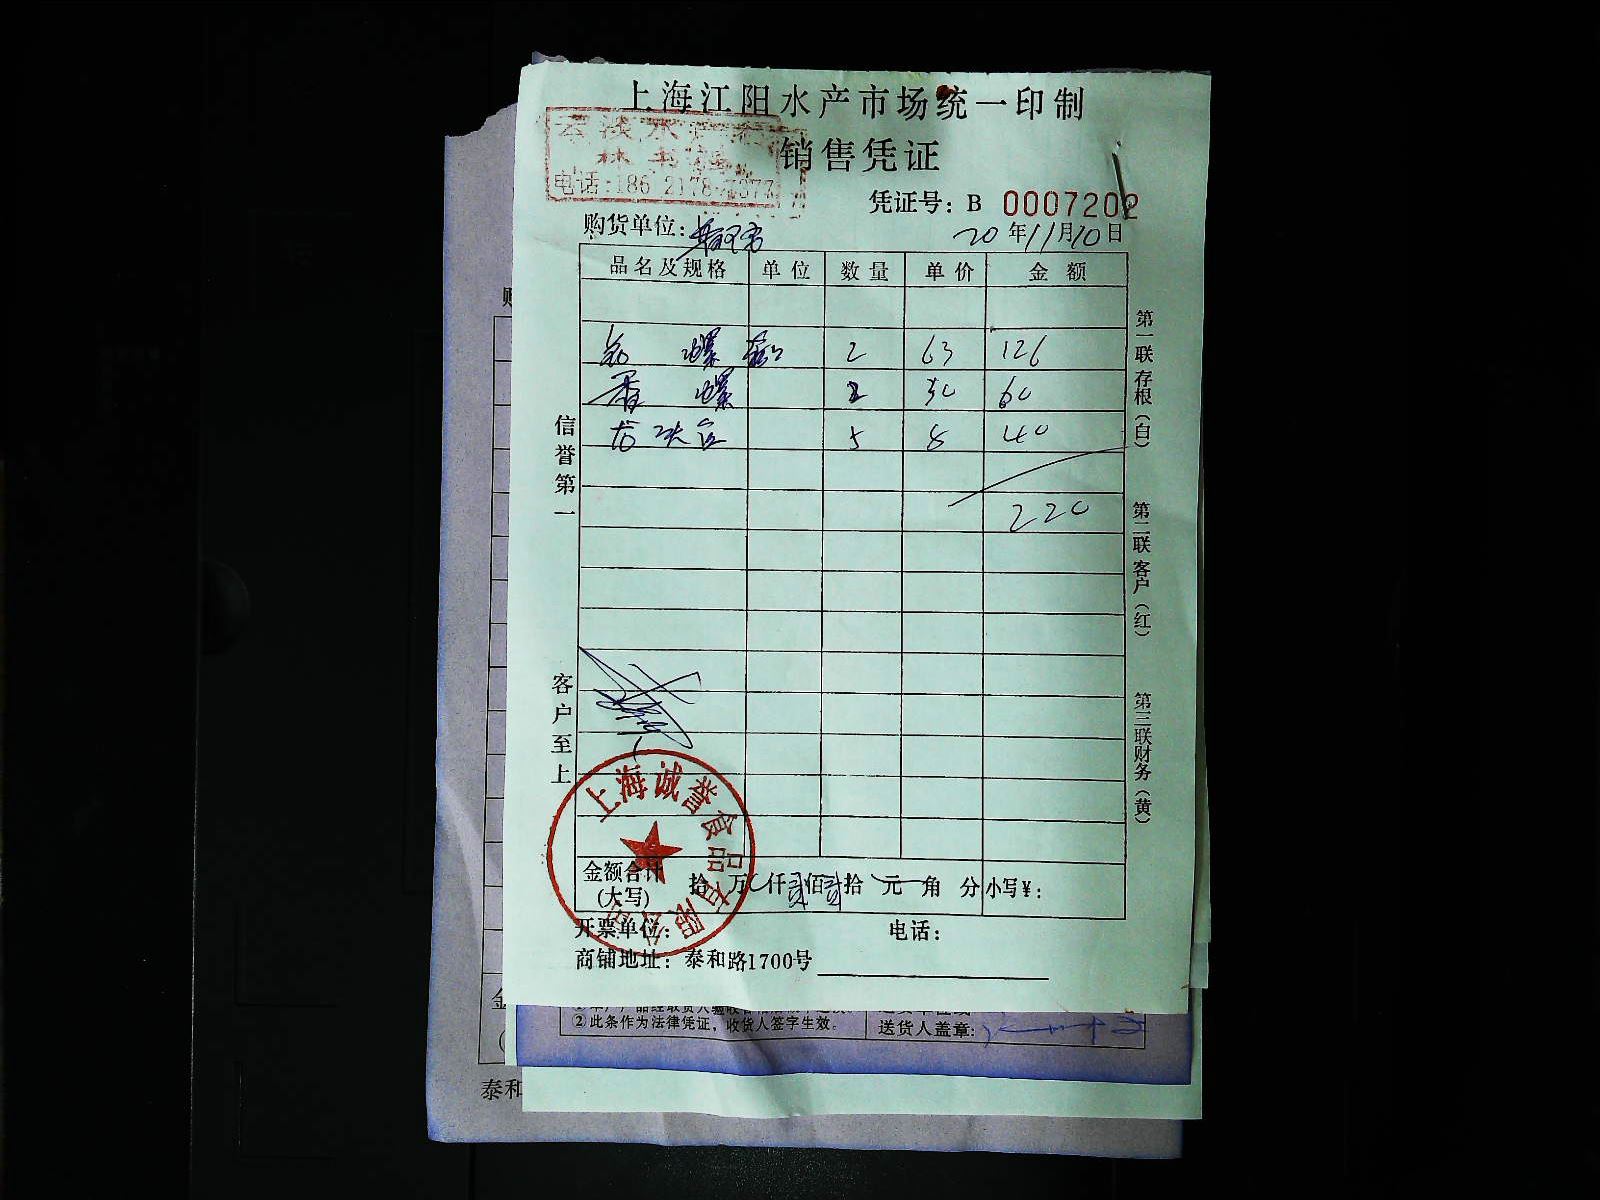 上海江阳水产市场统一印制
销售凭证
云淡水产
林
电话:186 2178 7677
凭证号: B 0007202
购货单位:
20年11月10日
品名及规格 单位 数量 单价 金额
螺 2 63 126
香螺 2 30 60
5 8 40
220
信誉第一
客户至上
第一联 存根(白)
第二联 客户(红)
第三联 财务(黄)
上海诚誉食品有限公司
金额合计 (大写) 拾 万 仟 贰佰贰拾 元 角 分 小写¥:
开票单位: 电话:
商铺地址: 泰和路1700号
②此条作为法律凭证,收货人签字生效。
送货人盖章:
泰和